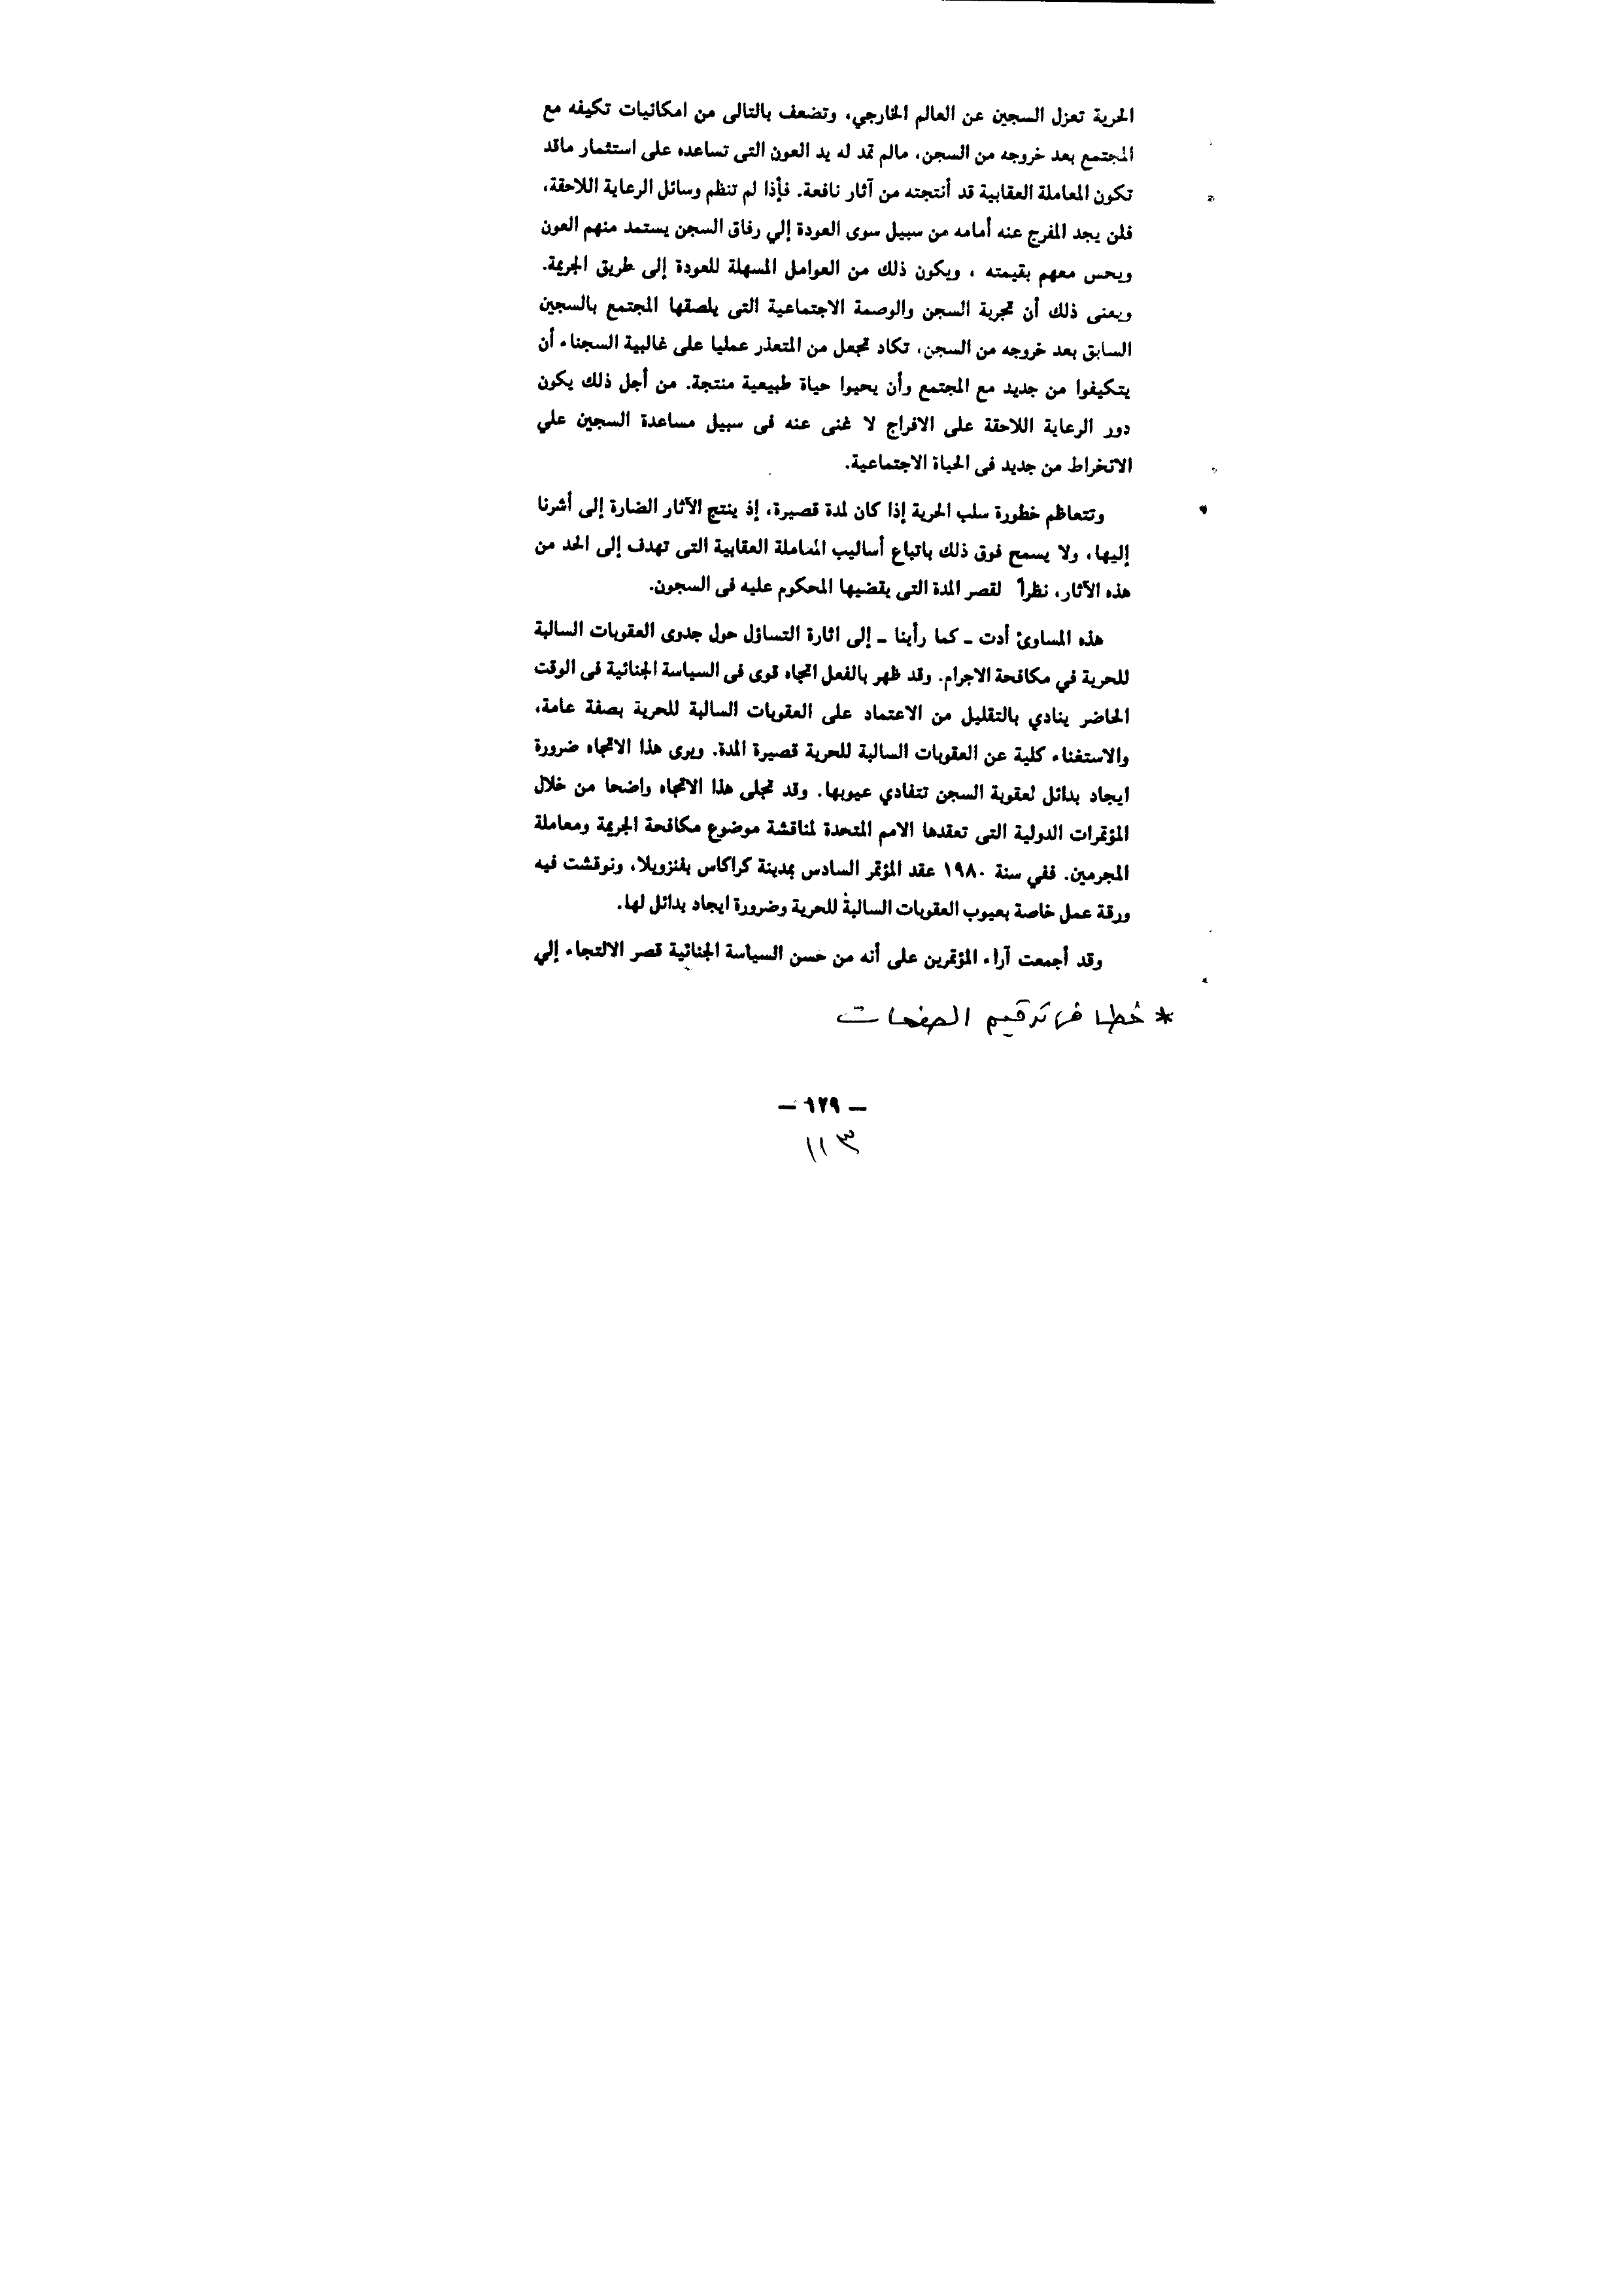 الحرية تعزل السجين عن العالم الخارجي، وتضعف بالتالى من امكانيات تكيفه مع
المجتمع بعد خروجه من السجن، مالم تمد له يد العون التى تساعده على استثمار ماقد
تكون المعاملة العقابية قد أنتجته من آثار نافعة. فأذا لم تنظم وسائل الرعاية اللاحقة،
فلن يجد المفرج عنه أمامه من سبيل سوى العودة إلي رفاق السجن يستمد منهم العون
ويحس معهم بقيمته ، ويكون ذلك من العوامل المسهلة للعودة إلى طريق الجريمة.
ويعنى ذلك أن تجربة السجن والوصمة الاجتماعية التى يلصقها المجتمع بالسجين
السابق بعد خروجه من السجن، تكاد تجعل من المتعذر عمليا على غالبية السجناء أن
يتكيفوا من جديد مع المجتمع وأن يحيوا حياة طبيعية منتجة. من أجل ذلك يكون
دور الرعاية اللاحقة على الافراج لا غنى عنه فى سبيل مساعدة السجين علي
الانخراط من جديد فى الحياة الاجتماعية.
وتتعاظم خطورة سلب الحرية إذا كان لمدة قصيرة، إذ ينتج الآثار الضارة إلى أشرنا
إليها، ولا يسمح فوق ذلك باتباع أساليب المعاملة العقابية التى تهدف إلى الحد من
هذه الآثار، نظراً لقصر المدة التى يقضيها المحكوم عليه فى السجون.
هذه المساوئ أدت ـ كما رأينا ـ إلى اثارة التساؤل حول جدوى العقوبات السالبة
للحرية في مكافحة الاجرام. وقد ظهر بالفعل اتجاه قوى فى السياسة الجنائية فى الوقت
الحاضر ينادي بالتقليل من الاعتماد على العقوبات السالبة للحرية بصفة عامة،
والاستغناء كلية عن العقوبات السالبة للحرية قصيرة المدة. ويرى هذا الاتجاه ضرورة
ايجاد بدائل لعقوبة السجن تتفادي عيوبها. وقد تجلى هذا الاتجاه واضحا من خلال
المؤتمرات الدولية التى تعقدها الامم المتحدة لمناقشة موضوع مكافحة الجريمة ومعاملة
المجرمين. ففي سنة ١٩٨٠ عقد المؤتمر السادس بمدينة كراكاس بفنزويلا، ونوقشت فيه
ورقة عمل خاصة بعيوب العقوبات السالبة للحرية وضرورة ايجاد بدائل لها.
وقد أجمعت آراء المؤتمرين على أنه من حسن السياسة الجنائية قصر الالتجاء إلي
* خطا فى ترقيم الصفحات
– ١٢٩ –
١١٣